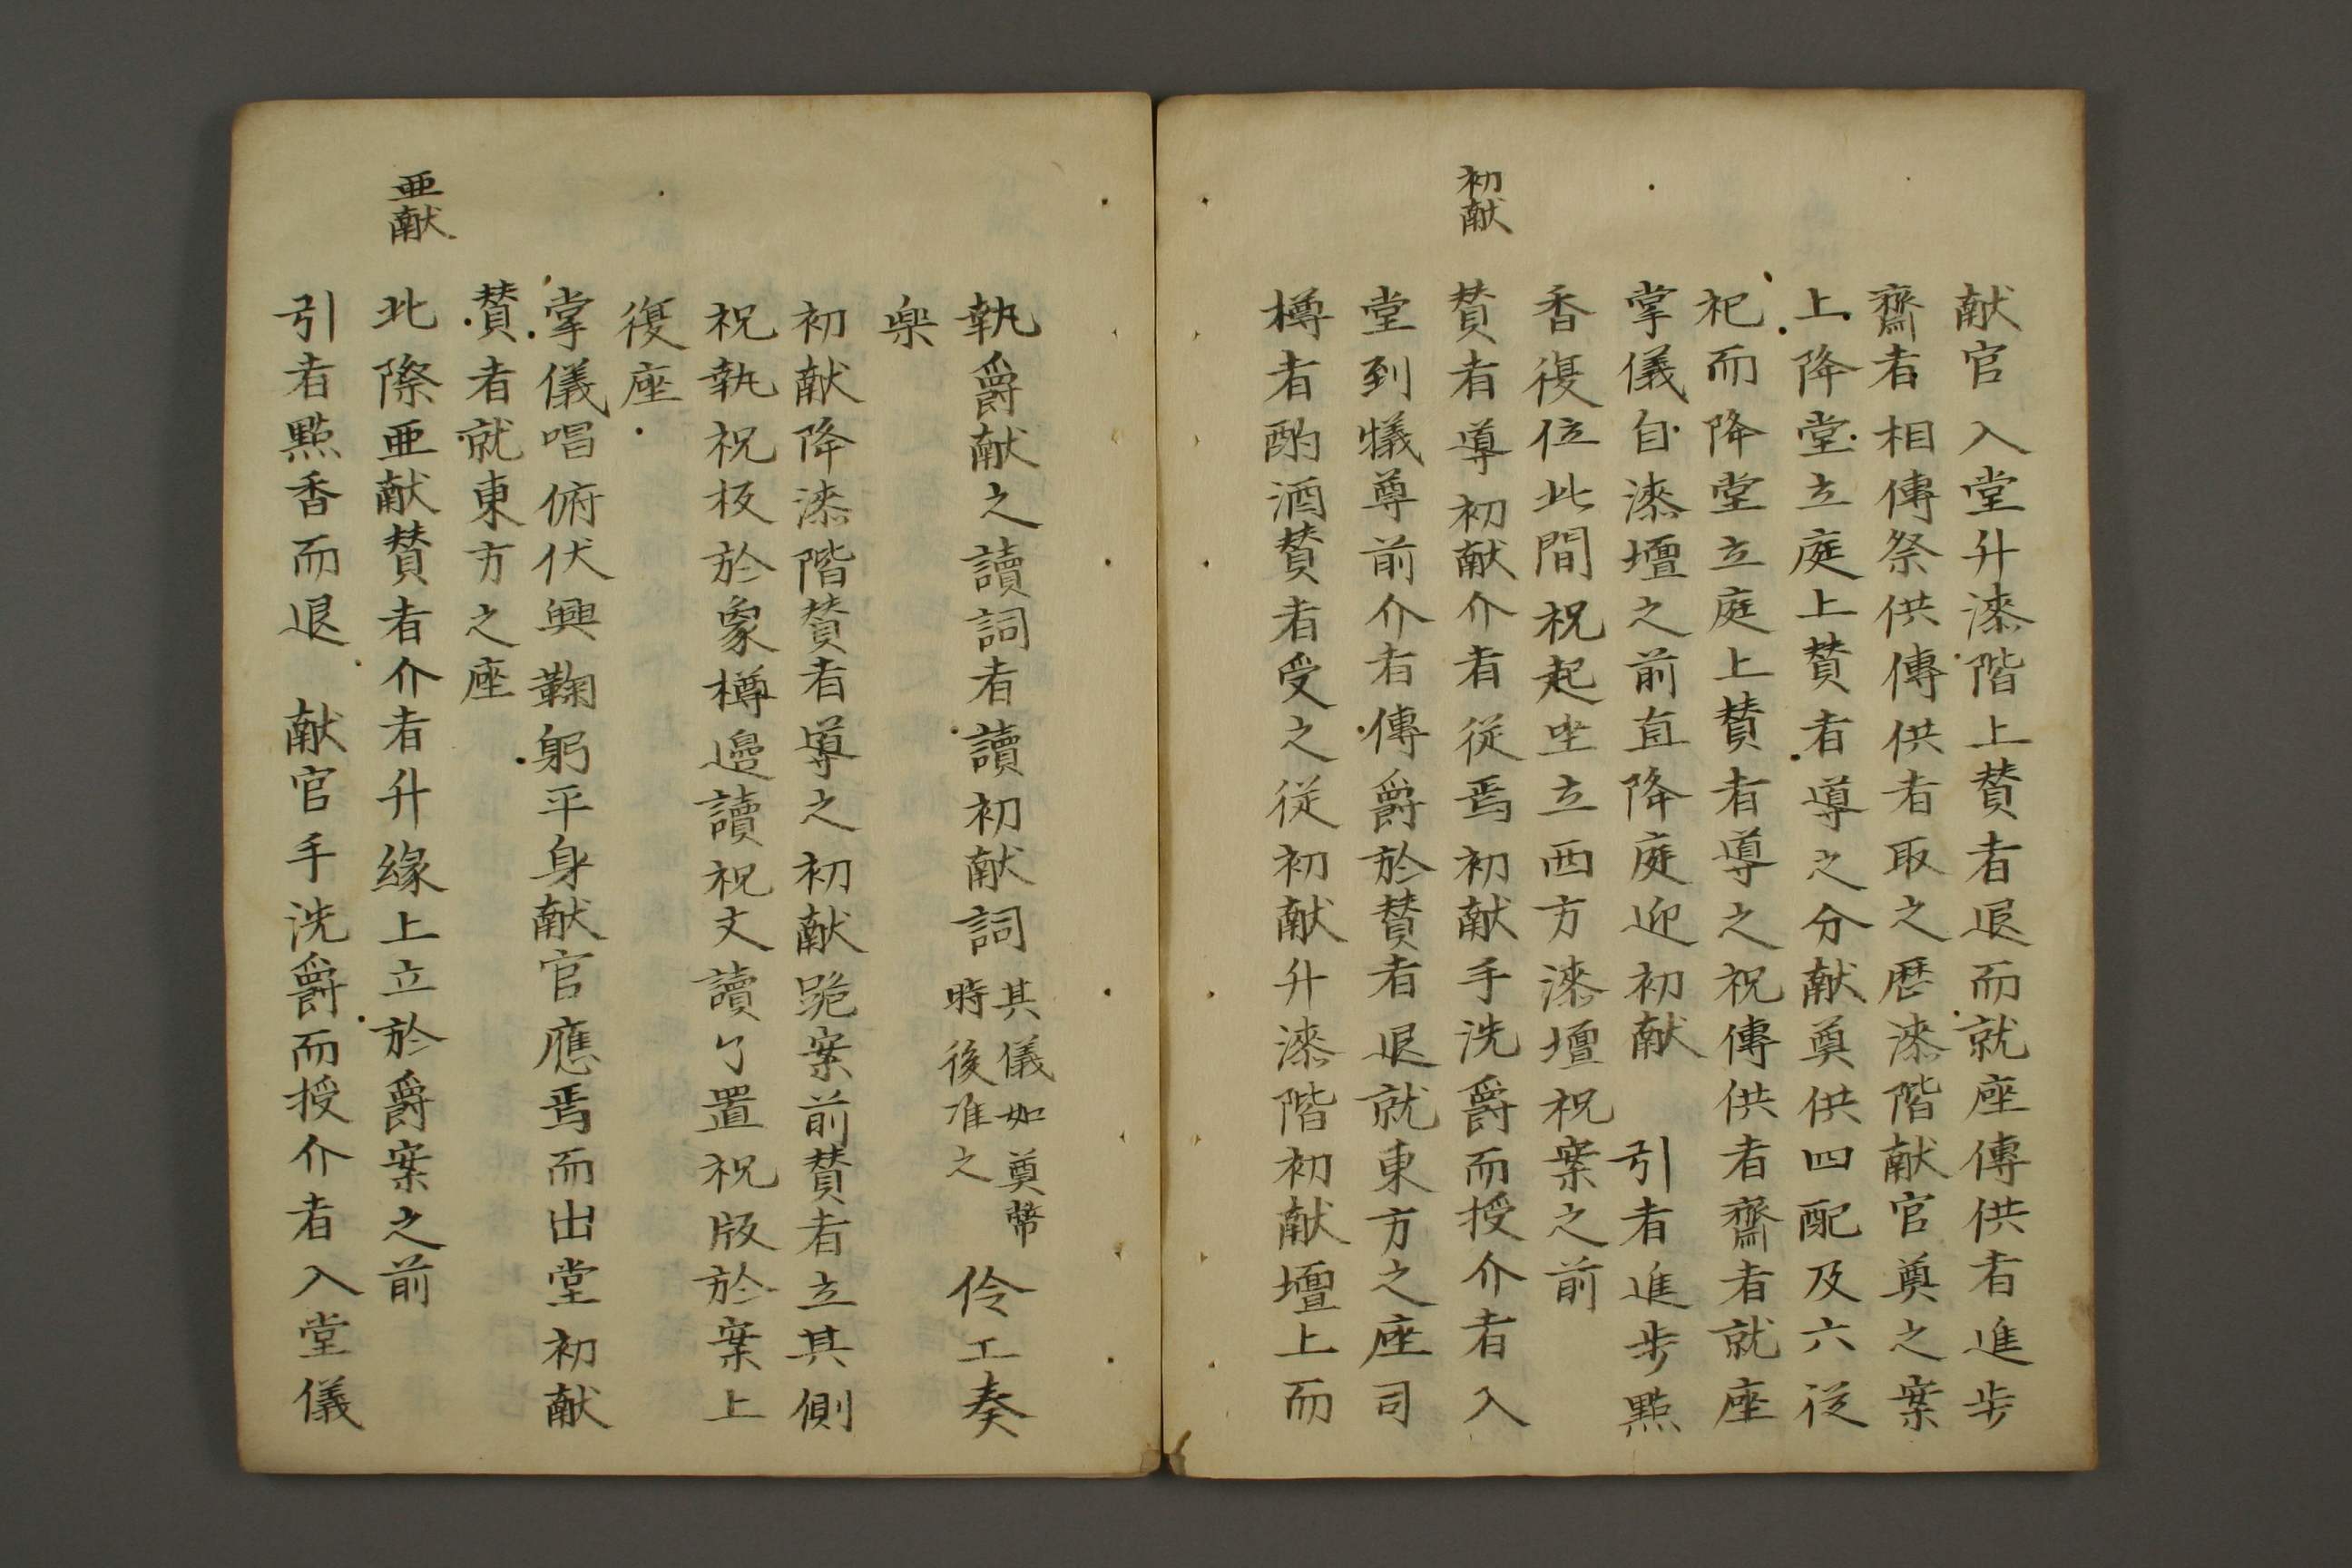 献官入堂升漆階上賛者退而就座傳供者進步
齋者相傳祭供傳供者取之歴漆階献官奠之案
上降堂立庭上賛者導之分献奠供四配及六從
祀而降堂立庭上賛者導之祝傳供者齋者就座
掌儀自漆壇之前直降庭迎初献　引者進步點
香復位此間祝起坐立西方漆壇祝案之前
初献
賛者導初献介者従焉初献手洗爵而授介者入
堂到犠尊前介者傳爵於賛者退就東方之座司
樽者酌酒賛者受之従初献升漆階初献壇上而
執爵献之讀詞者讀初献詞
其儀如奠幣
時後准之
伶工奏
楽
初献降漆階賛者導之初献跪案前賛者立其側
祝執祝板於象樽邉讀祝文讀了置祝版於案上
復座
掌儀唱俯伏興鞠躬平身献官應焉而出堂初献
賛者就東方之座
亜献
北際亜献賛者介者升縁上立於爵案之前
引者點香而退　献官手洗爵而授介者入堂儀